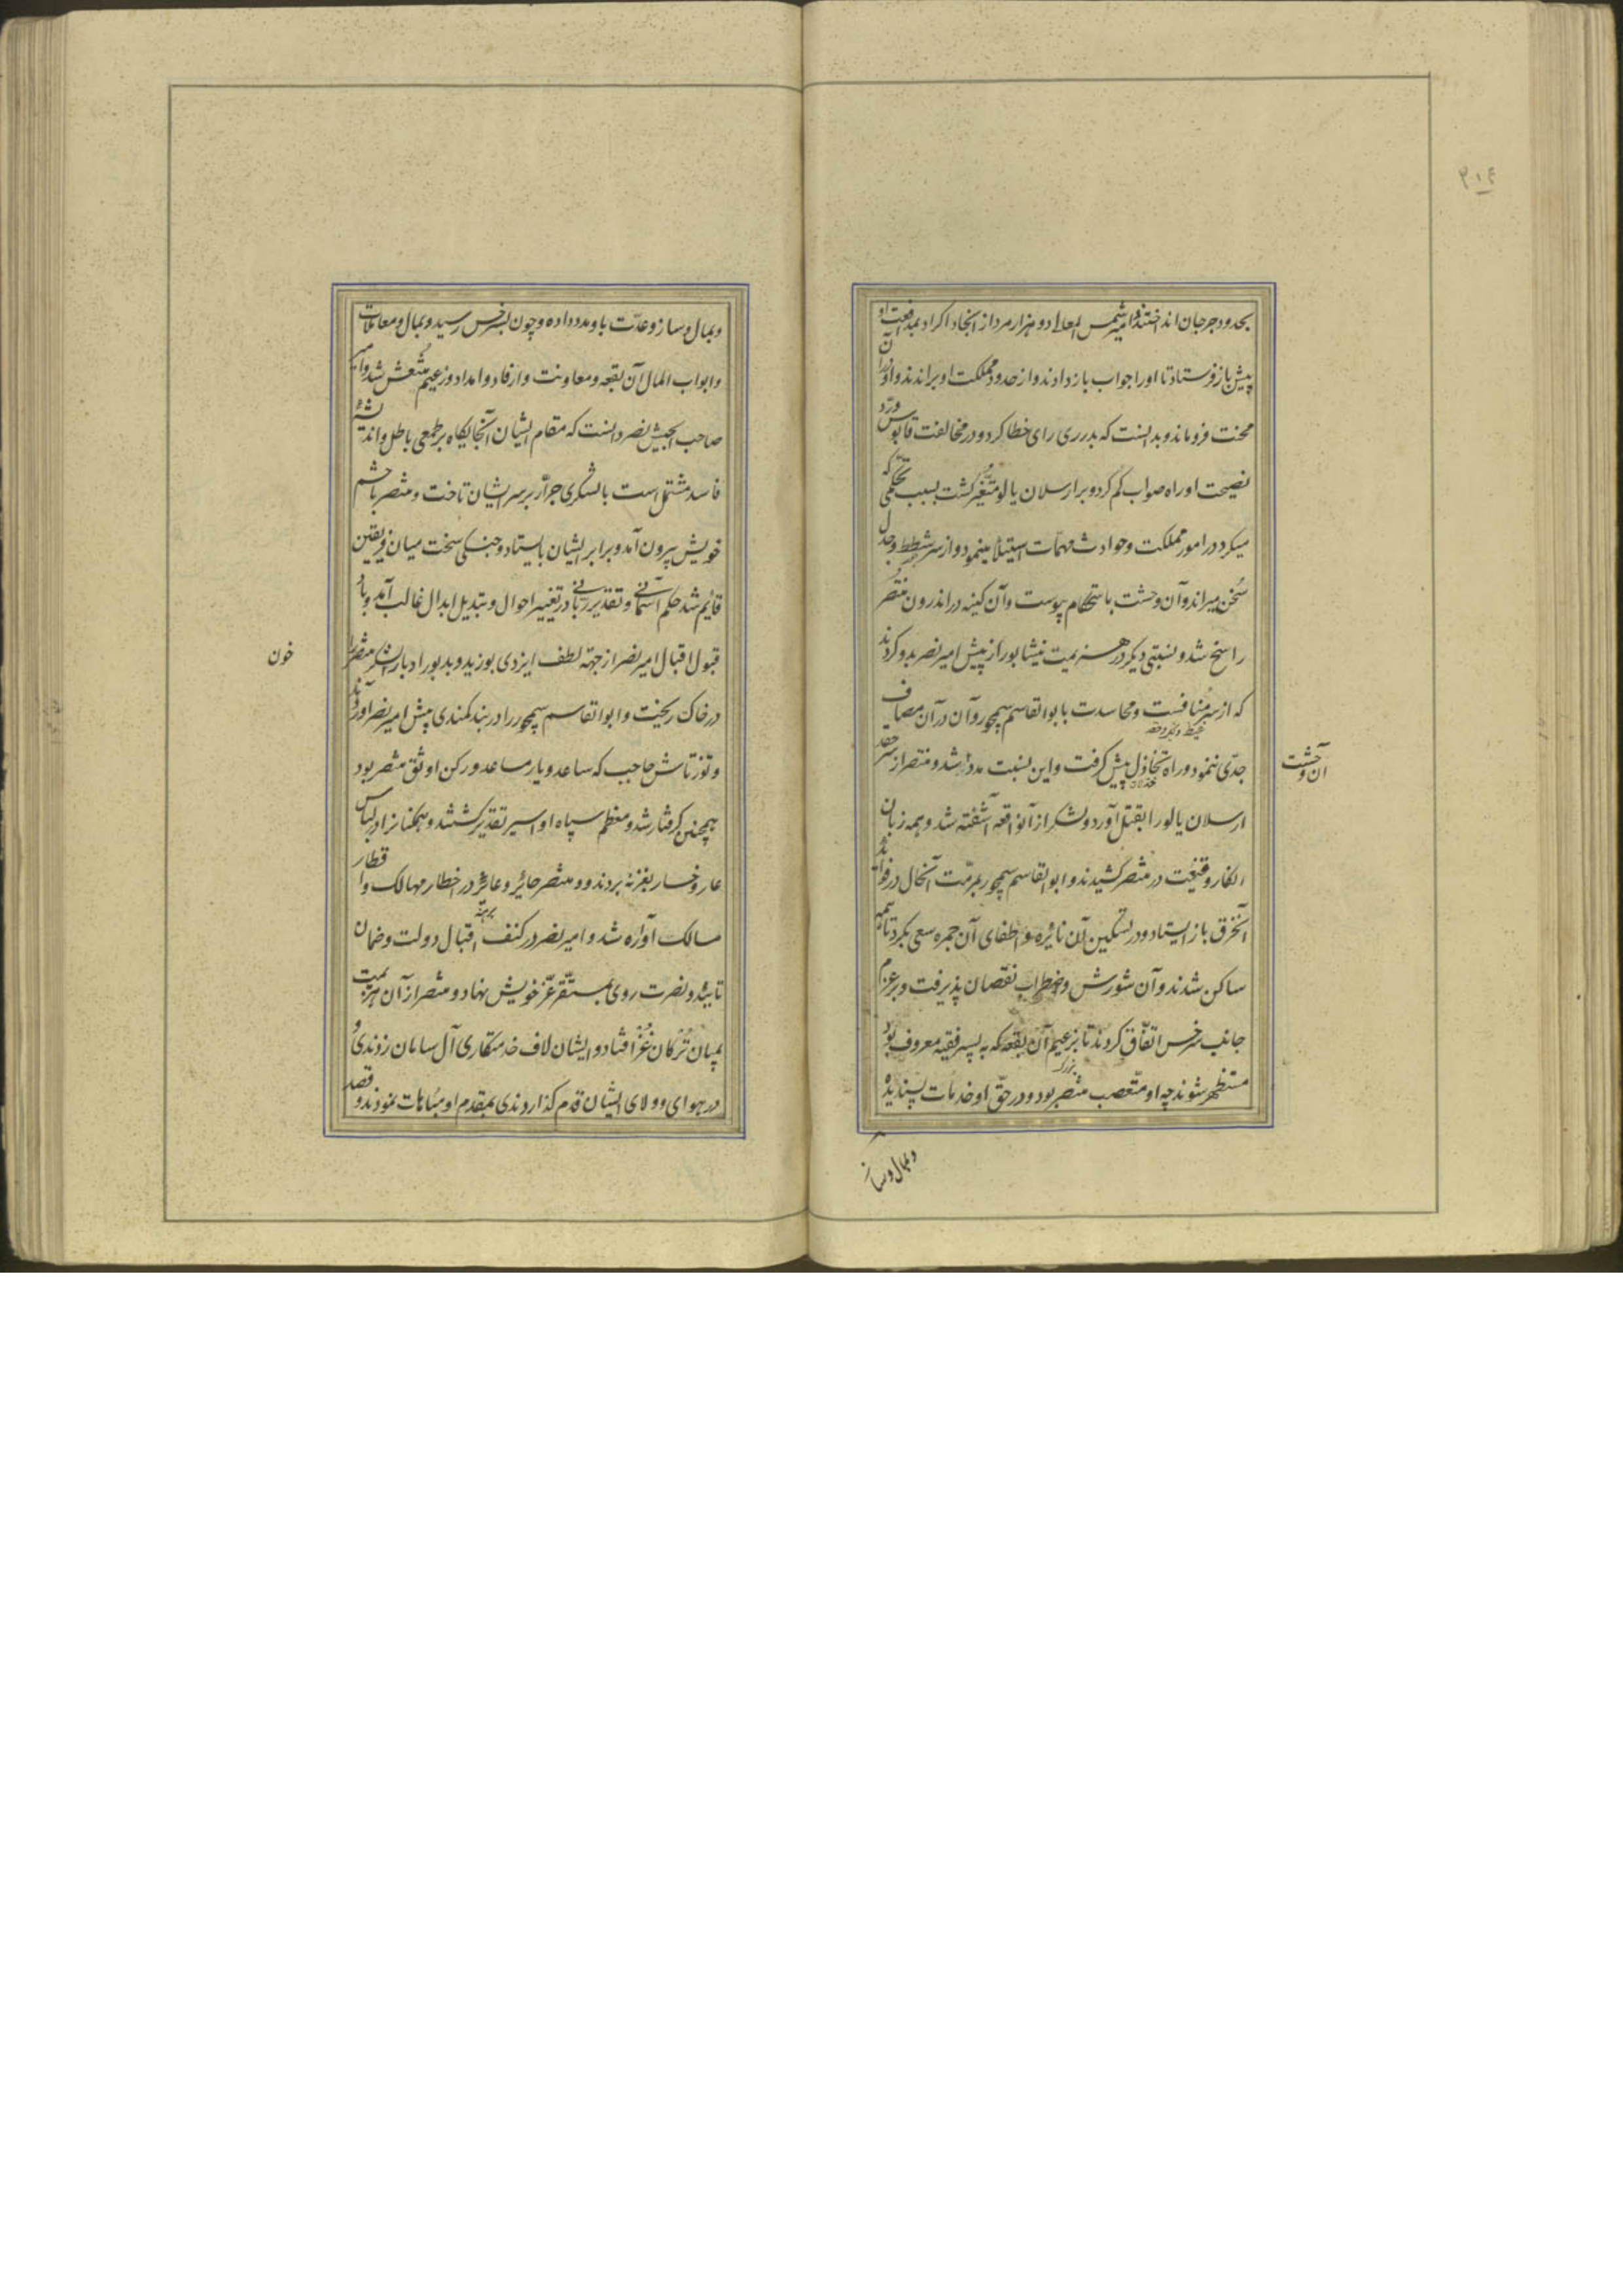 ۲۱۴
بحدود جرجان انداختند و امیر شمس المعالی دو هزار مرد از انجاد اکراد بمدافعت او
پیش باز فرستاد تا او را جواب باز دادند و از حدود مملکت او براندند و او از آن
محنت فرو ماند و بدانست که بدر ری رای خطا کرد و در مخالفت قابوس و رد
نصیحت او راه صواب کم کرد و بر ارسلان یالو متغیر کشت بسبب تحکمی که
میکرد در امور مملکت و حوادث مهمات استیلا مینمود و از سر شطط و جدل
سخن میراند و آن وحشت باستحکام پیوست و آن کینه در اندرون منتصر
راسخ شد و نسبتی دیکر در هزیمت نیشابور از پیش امیر نصر بدو کردند
که از سر منافست و محاسدت با بوالقاسم سیمجور و آن در آن مصاف
جدی ننمود و راه تخاذل پیش کرفت و این نسبت مدد آن وحشت شد و منتصر از سر حقد
ارسلان یالو را بقتل آورد و لشکر از آنواقعه آشفته شد و همه زبان
انکار و قیعت در منتصر کشیدند و ابوالقاسم سیمجور بمرمت آنحال در فراهم
آنخرق باز ایستاد و در تسکین آن نائره و اطفای آن جمره سعی بکرد تا همه
ساکن شدند و آن شورش و اضطراب نقصان پذیرفت و بر عزم
جانب سرخس اتفاق کردند تا بزعیم آن بقعه که به پسر فقیه معروف بود
مستظهر شوند چه او متعصب منتصر بود و در حق او خدمات پسندیده
و بمال و ساز
و بمال و ساز و عدت باو مدد داده و چون بسرخس رسید و بمال و معاملات
و ابواب المال آن بقعه و معاونت و ارفاد و امداد و زعیم منتعش شد و امیر
صاحب الجیش نصر دانست که مقام ایشان آنجایکاه بر طمعی باطل و اندیشه
فاسد مشتمل است با لشکری جرار بر سر ایشان تاخت و منتصر با حشم
خویش بیرون آمد و برابر ایشان بایستاد و جنکی سخت میان فریقین
قائم شد حکم آسمانی و تقدیر ربانی در تغییر احوال و تبدیل ابدال غالب آمد و باد
قبول اقبال امیر نصر از جهة لطف ایزدی بوزید و بدبور ادبار خون لشکر منتصر را
در خاک ریخت و ابوالقاسم سیمجور را در بند کمندی پیش امیر نصر آوردند
و توزتاش حاجب که ساعد و یار مساعد و رکن اوثق منتصر بود
همچنین کرفتار شد و معظم سپاه او اسیر تقدیر کشتند و همکنانرا در لباس
عار و خسار بغزنه بردند و منتصر حائر و عائر در اخطار مهالک و اقطار
مسالک آواره شد و امیر نصر در کنف اقبال دولت و ضمان
تایید و نصرت روی بمستقر عز خویش نهاد و منتصر از آن هزیمت
بمیان ترکان غز افتاد و ایشان لاف خدمتکاری آل سامان زدندی و
در هوای و ولای ایشان قدم کذاردندی بمقدم او مباهات نمودند و قصد